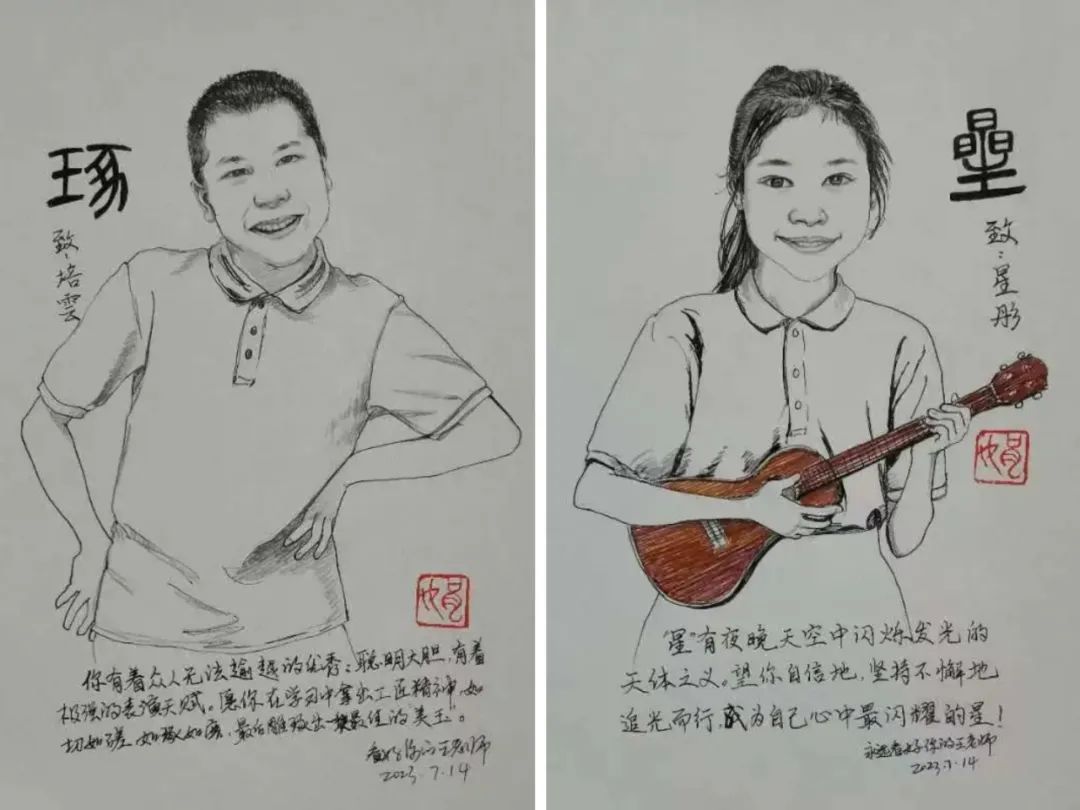 琢
致:培雲
你有着众人无法逾越的优秀:聪明大胆,有着
极强的表演天赋。愿你在学习中拿出工匠精神,如
切如磋,如琢如磨,最后雕琢出一块最佳的美玉。
看好你的王老师
2023.7.14
曐
致:星彤
"星"有夜晚天空中闪烁发光的
天体之义。望你自信地,坚持不懈地
追光而行,成为自己心中最闪耀的星!
永远看好你的王老师
2023.7.14